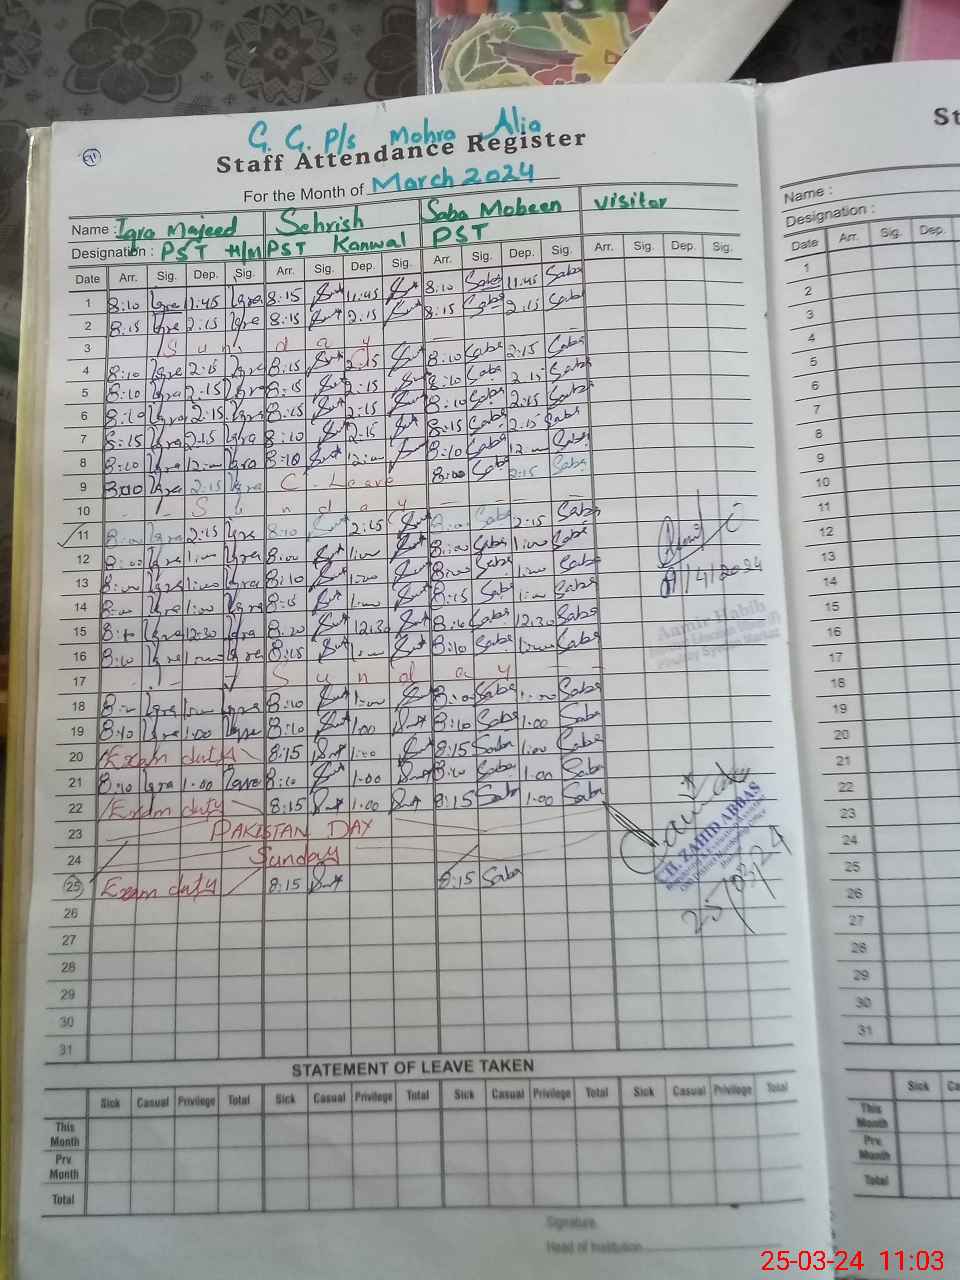 G. G. P/s Mohra Alia
Staff Attendance Register
For the Month of March 2024
Name : Iqra Majeed Sehrish Saba Mobeen visitor
Designation : PST H/M PST Kanwal PST
Date Arr. Sig. Dep. Sig. Arr. Sig. Dep. Sig. Arr. Sig. Dep. Sig. Arr. Sig. Dep. Sig.
1 8:10 Iqra 11:45 Iqra 8:15 11:45 8:10 Saba 11:45 Saba
2 8:15 Iqra 2:15 Iqra 8:15 2:15 8:15 Saba 2:15 Saba
3 Sunday
4 8:10 Iqra 2:15 Iqra 8:15 2:15 8:10 Saba 2:15 Saba
5 8:10 Iqra 2:15 Iqra 8:15 2:15 8:10 Saba 2:15 Saba
6 8:10 Iqra 2:15 Iqra 8:15 2:15 8:10 Saba 2:15 Saba
7 8:15 Iqra 2:15 Iqra 8:10 2:15 8:15 Saba 2:15 Saba
8 8:10 Iqra 12:00 Iqra 8:10 12:00 8:10 Saba 12:00 Saba
9 8:00 Iqra 2:15 Iqra C. Leave 8:00 Saba 2:15 Saba
10 Sunday
11 8:00 Iqra 2:15 Iqra 8:10 2:15 Saba 2:15 Saba
12 8:00 Iqra 1:00 Iqra 8:00 1:00 8:00 Saba 1:00 Saba
13 8:00 Iqra 1:00 Iqra 8:10 1:00 8:00 Saba 1:00 Saba
14 8:00 Iqra 1:00 Iqra 8:15 1:00 8:15 Saba 1:00 Saba
15 8:10 Iqra 12:30 Iqra 8:20 12:30 8:10 Saba 12:30 Saba
16 8:10 Iqra 1:00 Iqra 8:15 1:00 8:10 Saba 1:00 Saba
17 Sunday
18 8:00 Iqra 1:00 Iqra 8:10 1:00 8:00 Saba 1:00 Saba
19 8:10 Iqra 1:00 Iqra 8:10 1:00 8:10 Saba 1:00 Saba
20 Exam duty 8:15 1:00 8:15 Saba 1:00 Saba
21 8:10 Iqra 1:00 Iqra 8:10 1:00 8:10 Saba 1:00 Saba
22 Exam duty 8:15 1:00 8:15 Saba 1:00 Saba
23 PAKISTAN DAY
24 Sunday
25 Exam duty 8:15 8:15 Saba
26
27
28
29
30
31
/4/2024
Aamir Habib
CH. ZAHID ABBAS
25/03/24
STATEMENT OF LEAVE TAKEN
Sick Casual Privilege Total Sick Casual Privilege Total Sick Casual Privilege Total Sick Casual Privilege Total
This Month
Prv. Month
Total
Signature
Head of Institution
St
Name :
Designation :
Date Arr. Sig. Dep.
1
2
3
4
5
6
7
8
9
10
11
12
13
14
15
16
17
18
19
20
21
22
23
24
25
26
27
28
29
30
31
Sick Ca
This Month
Prv. Month
Total
25-03-24 11:03